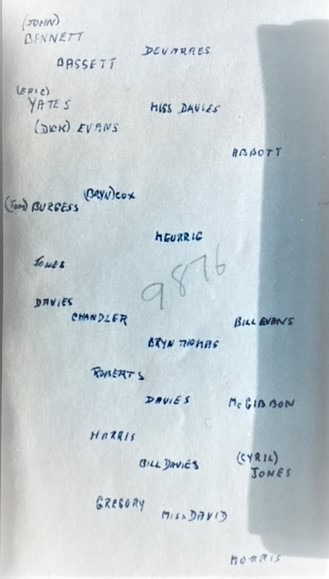 (JOHN)
BENNETT
DEVARRES
BASSETT
(ERIC)
YATES
MISS DAVIES
(DICK) EVANS
ABBOTT
(BRYN) COX
(JOHN) BURGESS
MEURRIG
JONES
9876
DAVIES
CHANDLER
BILL EVANS
BRYN THOMAS
ROBERTS
DAVIES
McGIBBON
HARRIS
BILL DAVIES
(CYRIL)
JONES
GREGORY
MISS DAVID
MORRIS